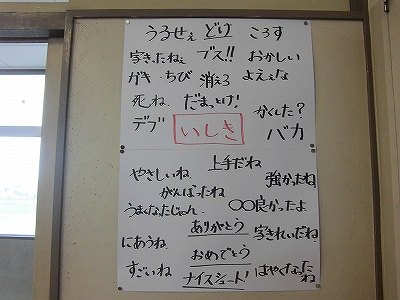 うるせぇ どけ ころす
字きたねぇ ブス!! おかしい
ガキ ちび 消えろ よえぇな
死ね だまっとけ!
デブ いしき かくした? バカ
やさしいね 上手だね 強かったね
がんばったね
うまくなたじゃん 〇〇良かったよ
ありがとう 字きれいだね
にあうね おめでとう
すごいね ナイスシュート! はやくなったね